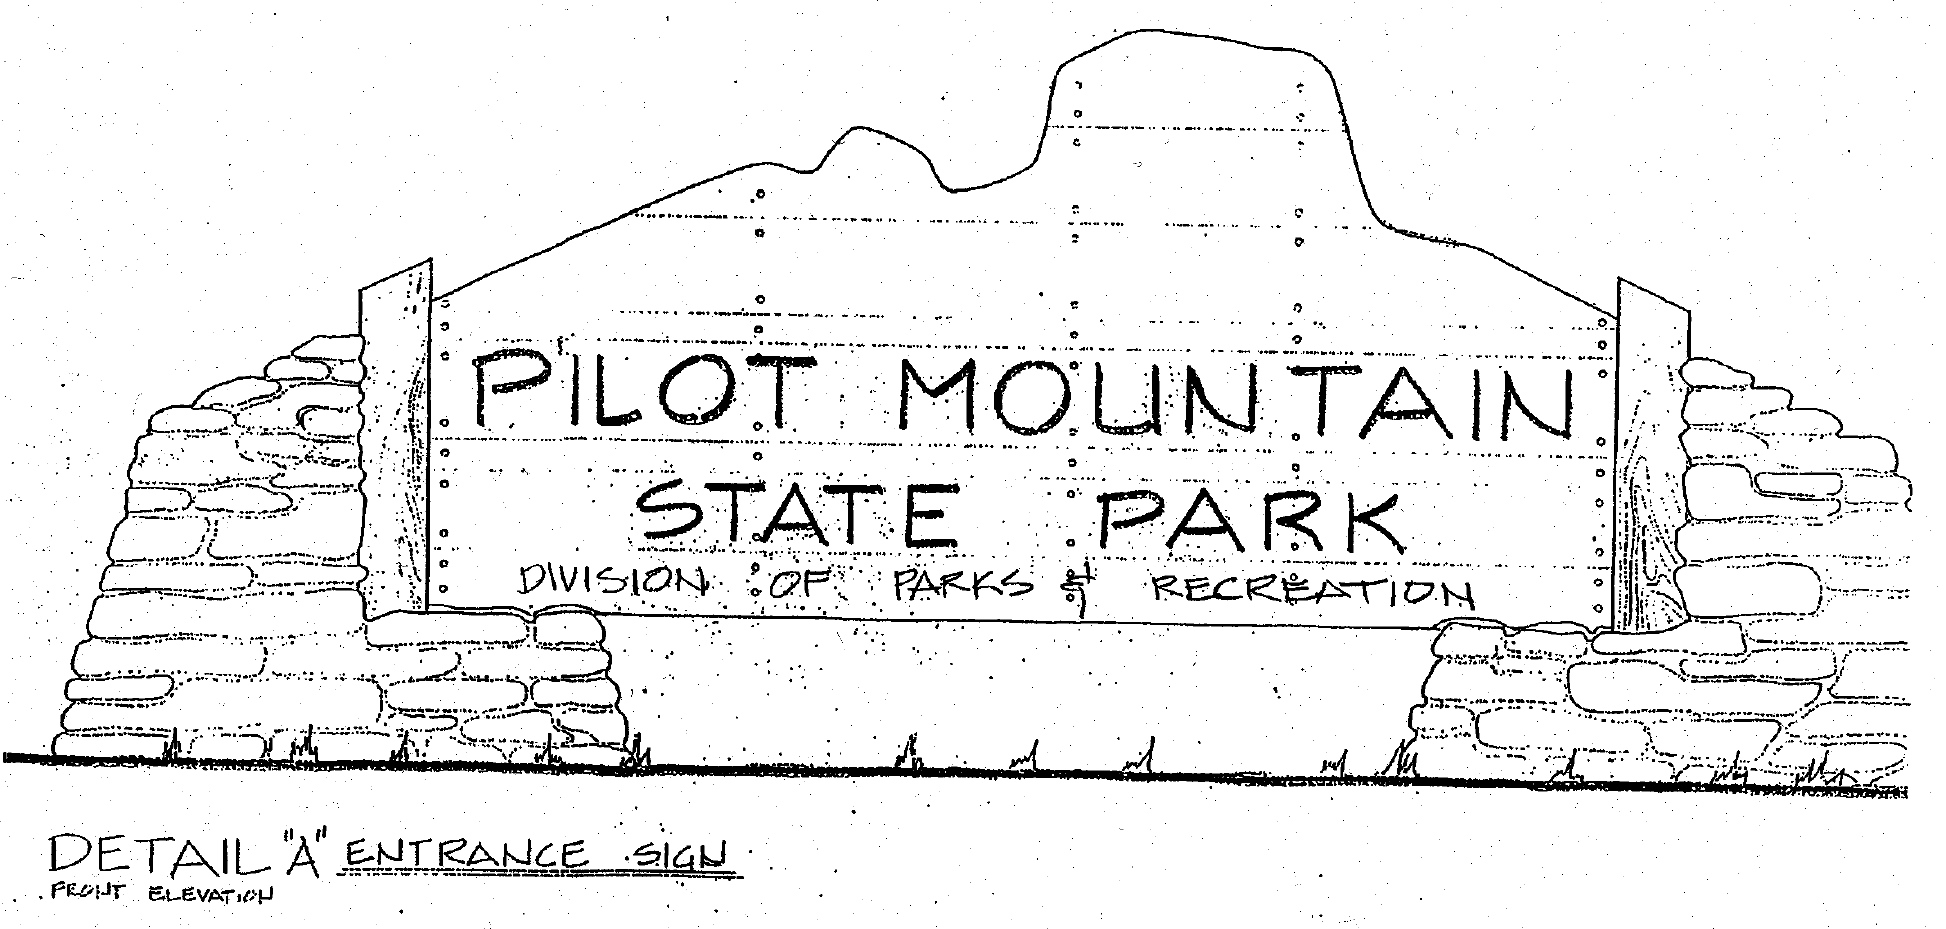 PILOT MOUNTAIN
STATE PARK
DIVISION OF PARKS & RECREATION
DETAIL "A" ENTRANCE SIGN
FRONT ELEVATION